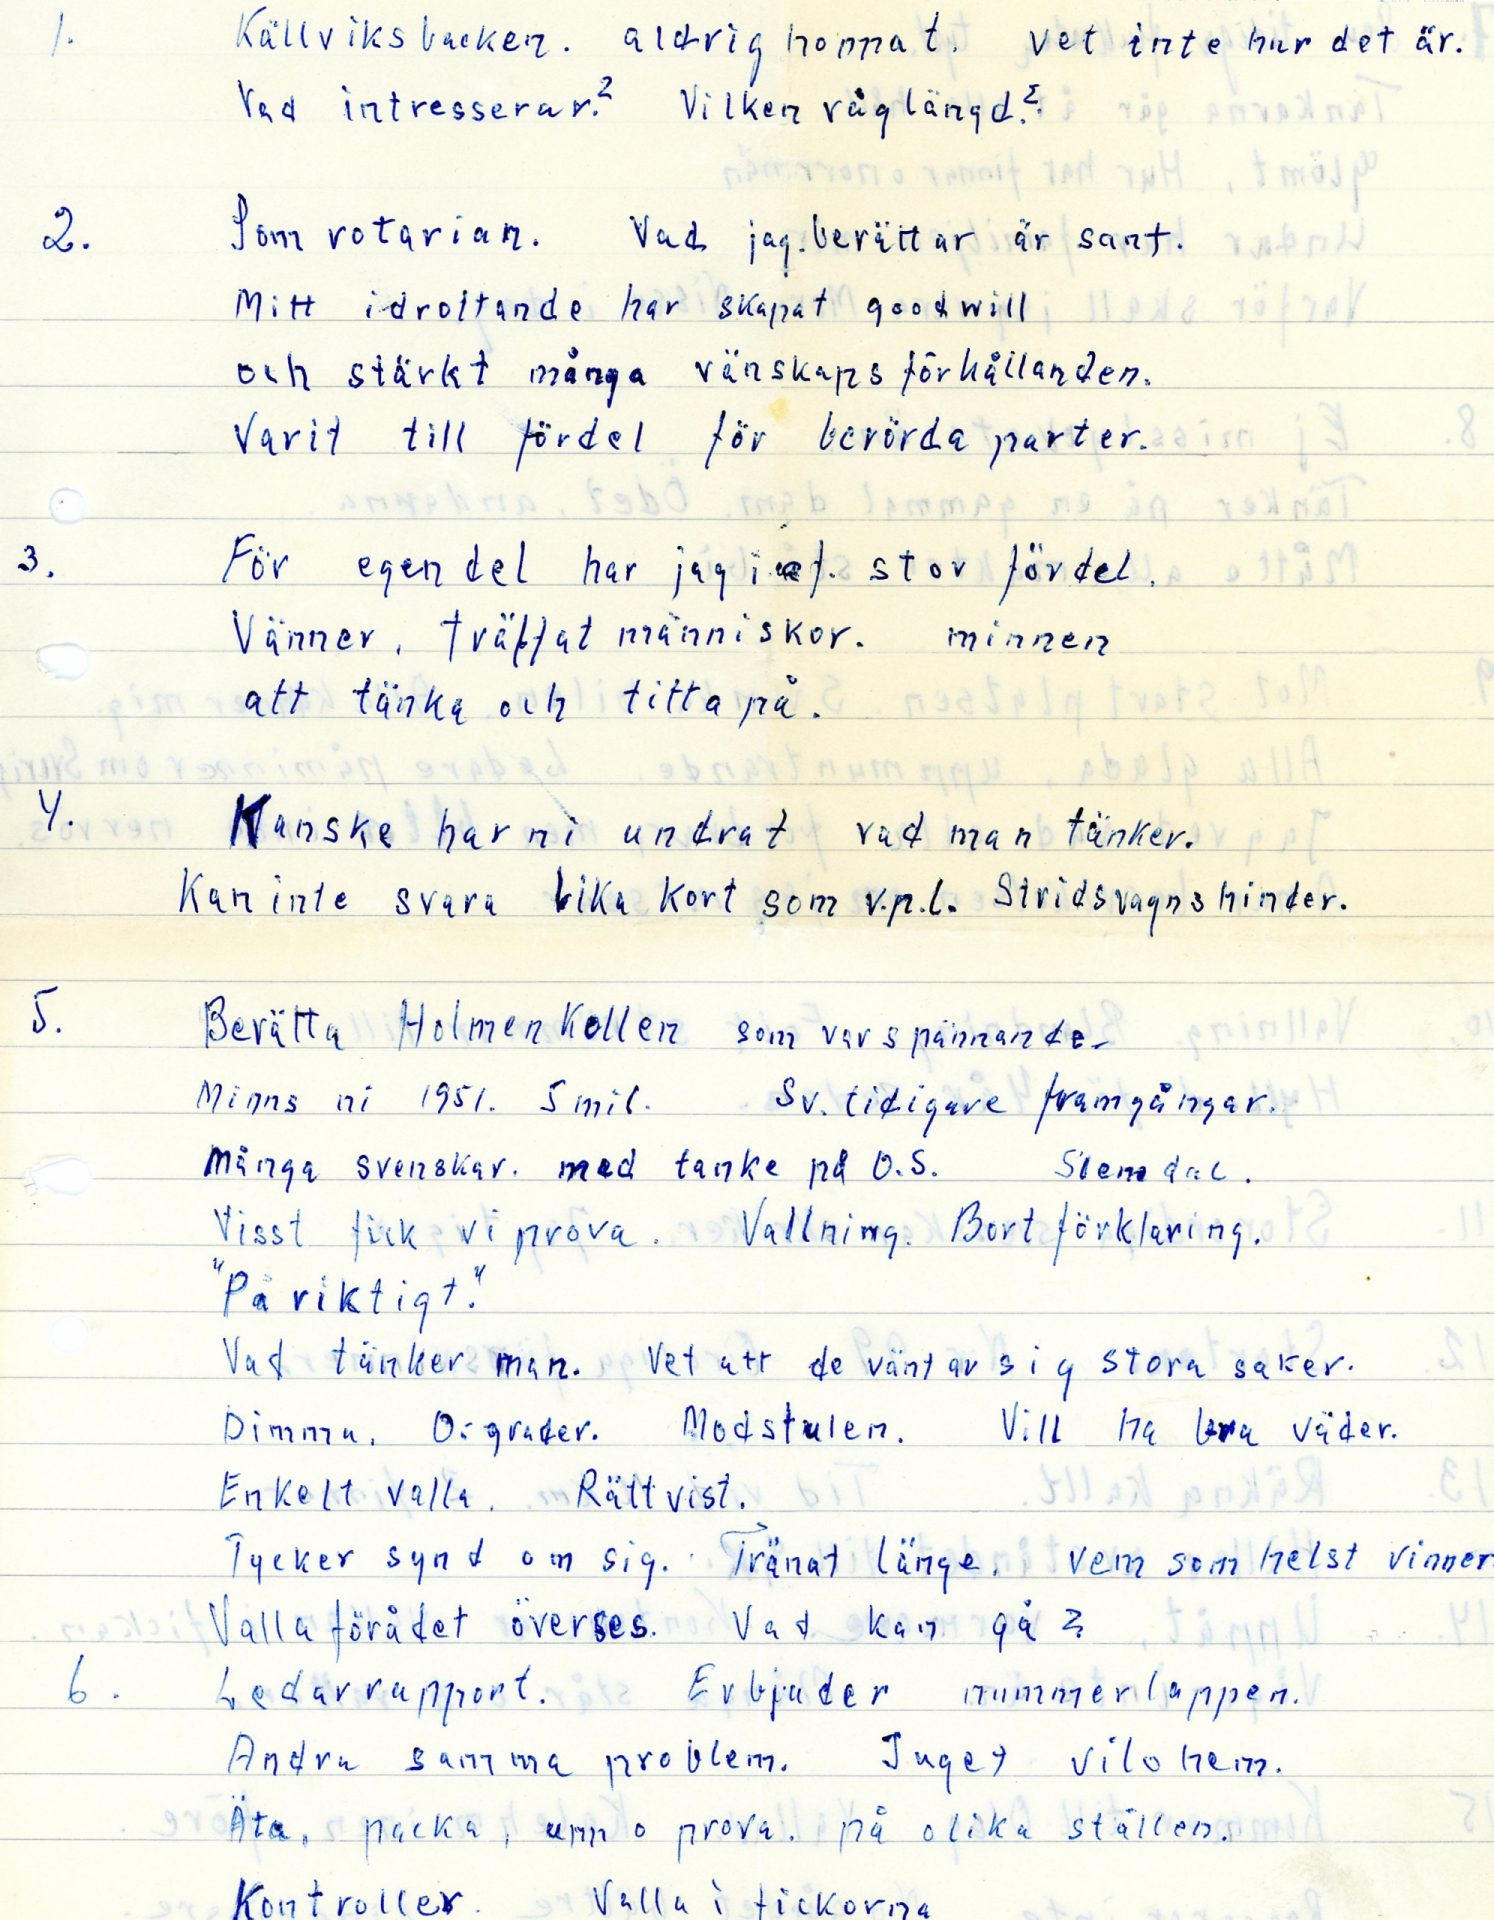 1. Källviksbacken. aldrig hoppat. Vet inte hur det är.
Vad intresserar? Vilken våglängd?
2. Som rotarian. Vad jag berättar är sant.
Mitt idrottande har skapat goodwill
och stärkt många vänskapsförhållanden.
Varit till fördel för berörda parter.
3. För egen del har jag stor fördel.
Vänner, träffat människor. minnen
att tänka och titta på.
4. Kanske har ni undrat vad man tänker.
Kan inte svara lika kort som v.p.l. Stridsvagnshinder.
5. Berätta Holmenkollen som var spännande.
Minns ni 1951. 5 mil. Sv. tidigare framgångar.
Många svenskar. med tanke på O.S. Slemdal.
Visst fick vi prova. Vallning. Bortförklaring.
"På riktigt."
Vad tänker man. Vet att de väntar sig stora saker.
Dimma. 0-grader. Modstulen. Vill ha bra väder.
Enkelt valla. Rättvist.
Tycker synd om sig. Tränat länge. vem som helst vinner
Vallaförådet överses. Vad kan gå?
6. Ledarrapport. Erbjuder nummerlappen.
Andra samma problem. Inget vilohem.
Äta, packa, upp o prova. på olika ställen.
Kontroller. Valla i fickorna